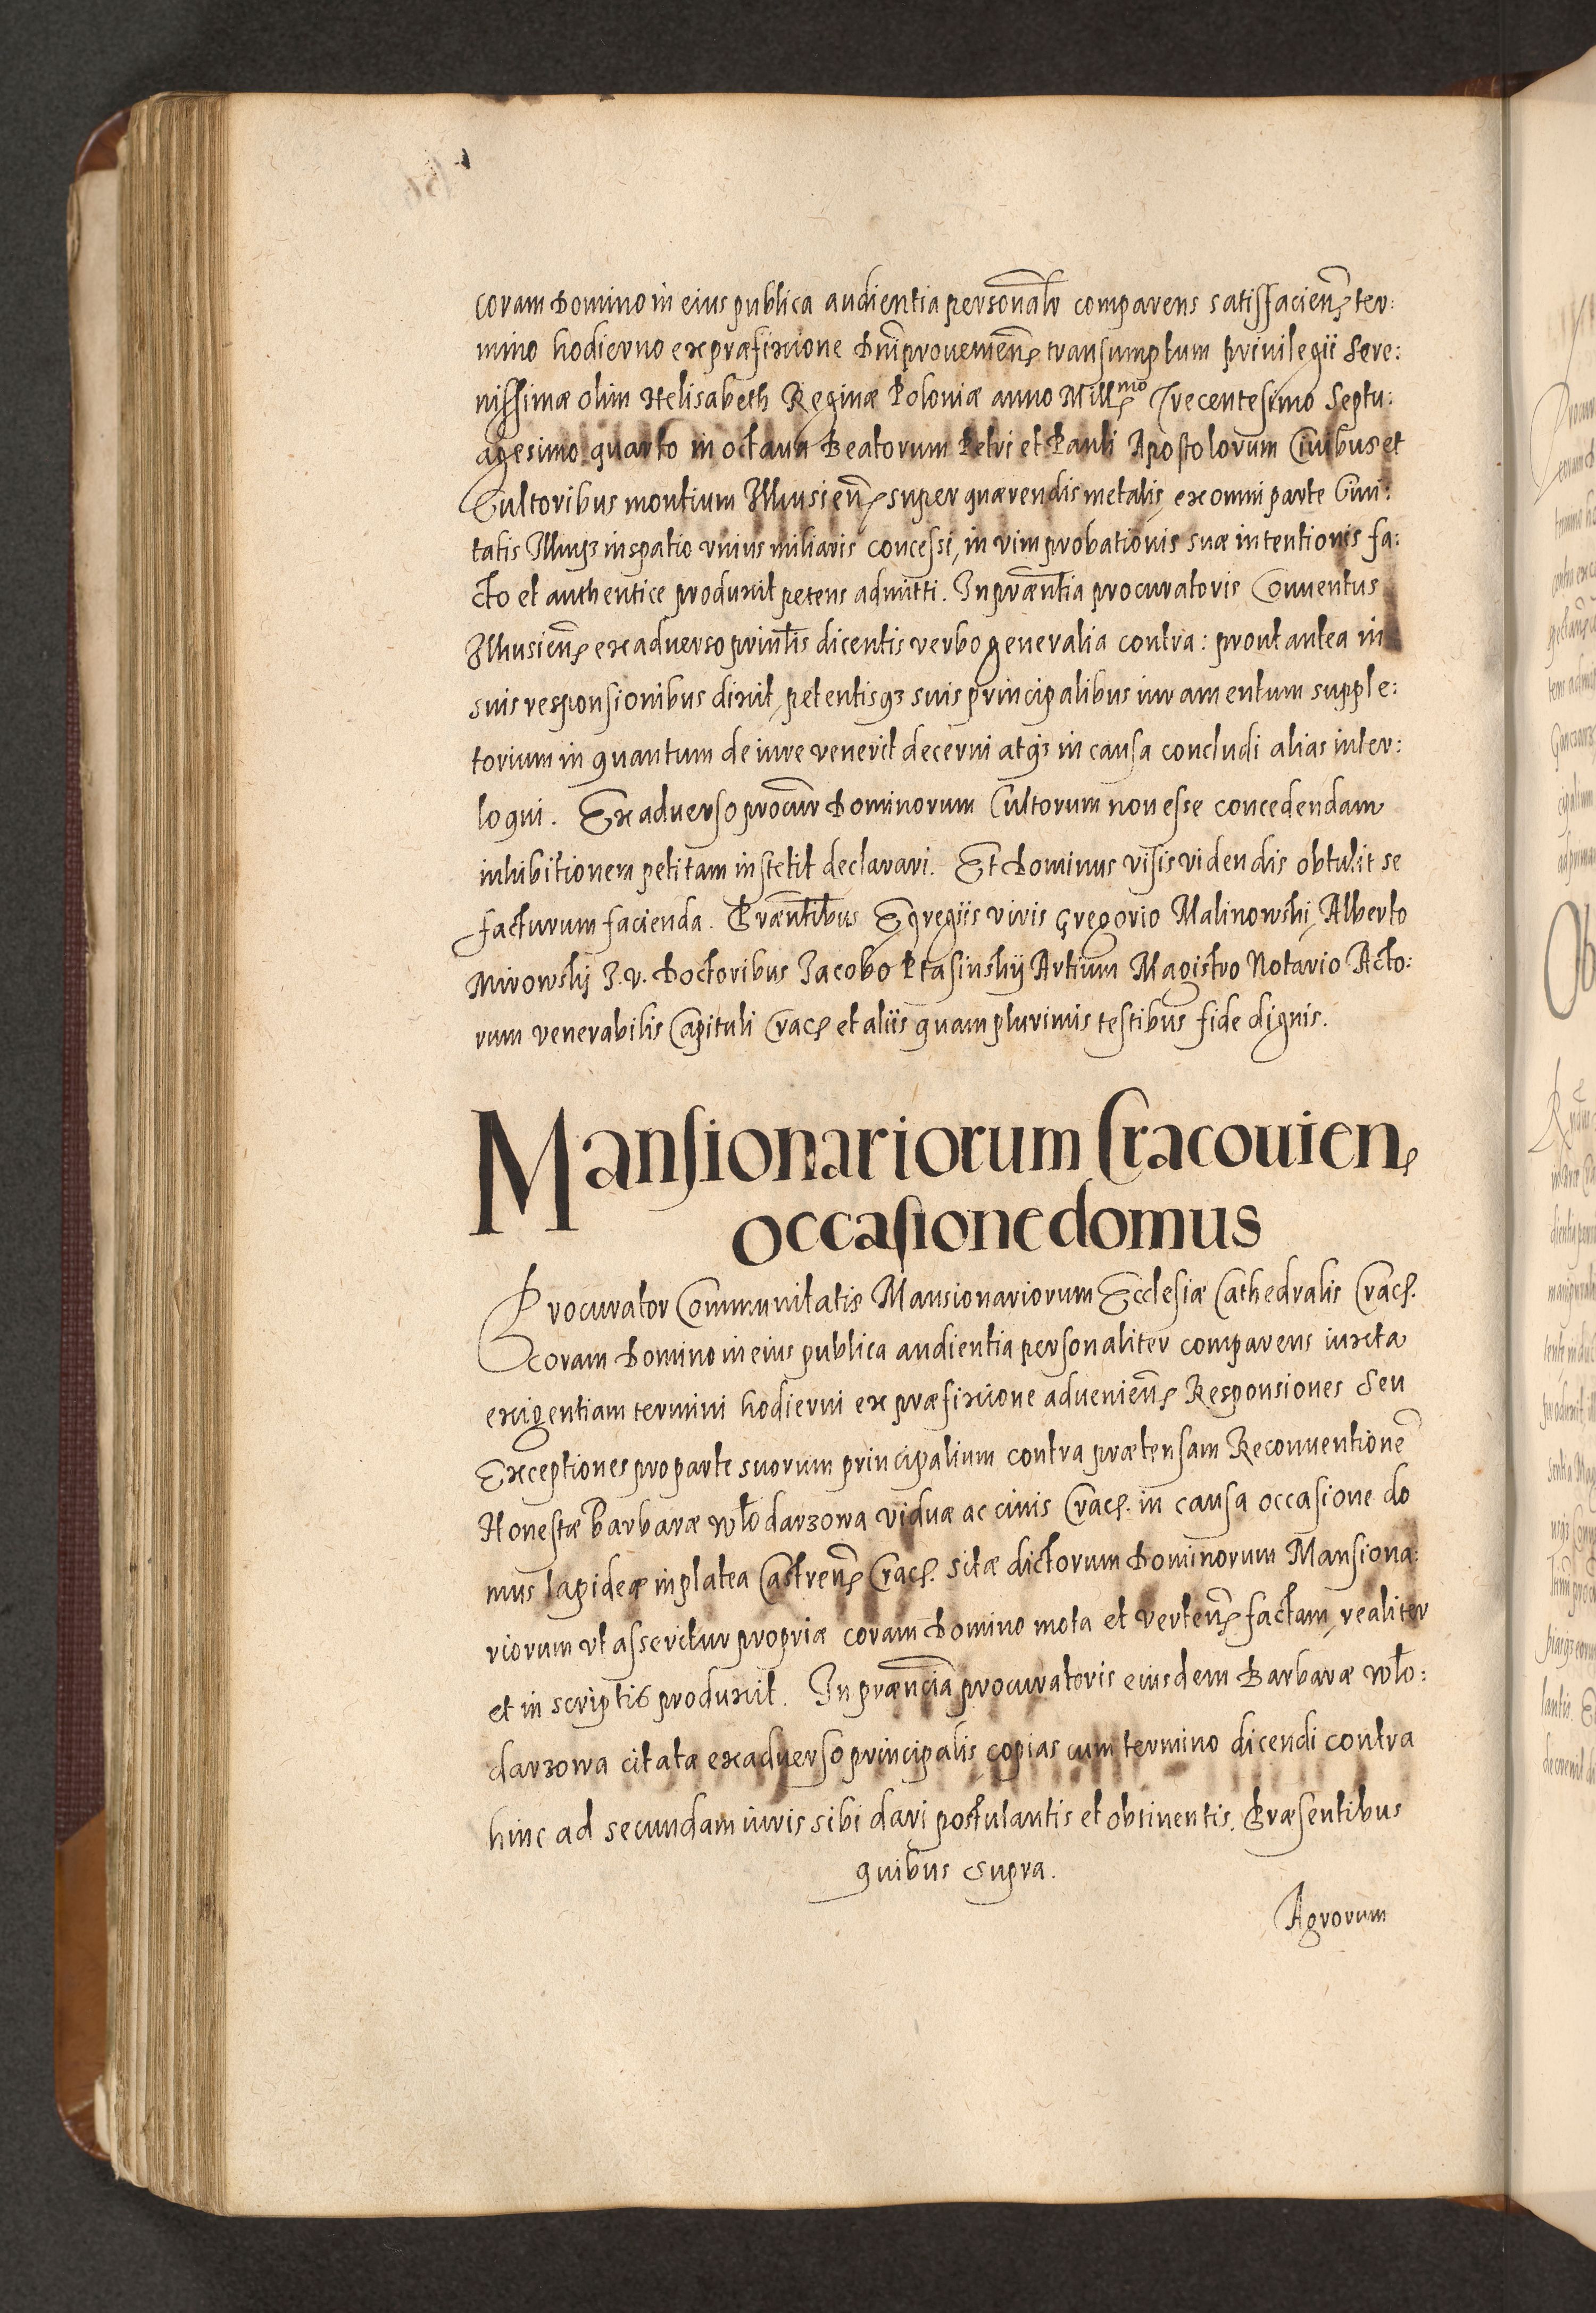 coram Domino in eius publica audientia personalr̃ comparens satisfacien̄ ter:
mino hodierno ex præfixione Dn̄i provenien̄ transumptum privilegii Sere:
nissimæ olim Helisabeth Reginæ Poloniæ anno Mill^mo Trecentesimo Septu:
agesimo quarto in octava Beatorum Petri et Pauli Apostolorum Civibus et
Cultoribus montium Illkusien̄ super quærendis metalis, ex omni parte Civi:
tatis Ilkusz in spatio vnius miliaris concessi, in vim probationis suæ intentionis fa:
cto et authentice produxit petens admitti. In præn̄tia procuratoris Conventus
Ilkusien̄ ex adverso prin̄lis dicentis verbo generalia contra: prout antea in
suis responsionibus dixit, petentisqȝ suis principalibus iuramentum supple:
torium in quantum de iure venerit decerni atqȝ in causa concludi alias inter:
loqui. Ex adverso procur̃ Dominorum Cultorum non esse concedendam
inhibitionem petitam institit declarari. Et Dominus visis videndis obtulit se
facturum facienda. Præn̄tibus Egregiis viris Gregorio Malinowski, Alberto
Mirowskÿ J. v. Doctoribus Jacobo Ptasinskÿ Artium Magistro Notario Acto:
rum venerabilis Capituli Crac̨ et aliis quam plurimis testibus fide dignis.
Mansionariorum Cracouien̨
occasione domus
Procurator Communitatis Mansionariorum Ecclesiæ Cathedralis Crac̨.
coram Domino in eius publica audientia personaliter comparens iuxta
exigentiam termini hodierni ex præfixione advenien̄ Responsiones Seu
Exceptiones pro parte suorum principalium contra prætensam Reconventionē
Honestæ Barbaræ Włodarzowa viduæ ac civis Crac̨. in causa occasione do
mus lapideæ in platea Castren̄ Crac̨. sitæ dictorum Dominorum Mansiona:
riorum vt asseritur propriæ coram Domino mota et verten̄ factam, realiter
et in scriptis produxit. In præn̄cia procuratoris eiusdem Barbaræ Wło:
darzowa citatæ ex adverso principalis, copias cum termino dicendi contra
hinc ad secundam iuris sibi dari postulantis et obtinentis. Præsentibus
quibus supra.
Agrorum